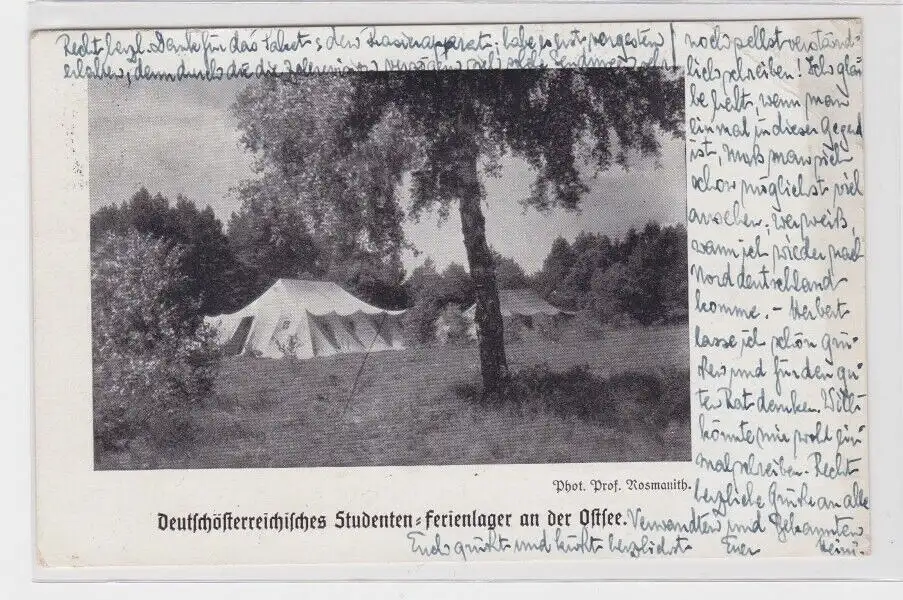 Recht herzl. Dank für das Paket u. den Rasierapparat; habe es gute, vergessen
erhalten; denn durch die
noch selbst verständ-
lich schreiben! Ich glau
be halt, wenn man
einmal in dieser Gegend
ist, muß man sich
schon möglichst viel
ansehen; wer weiß,
wann ich wieder nach
Norddeutschland
komme. – Herbert
lasse ich schön grü-
ßen und für den gu-
ten Rat danken. Willi
könnte mir wohl ein
mal schreiben. Recht
herzliche Grüße an alle
Phot. Prof. Rosmanith.
Deutschösterreichisches Studenten-Ferienlager an der Ostsee.
Verwandten und Bekannten
Euch grüßt und küßt herzlichst Euer Heini.